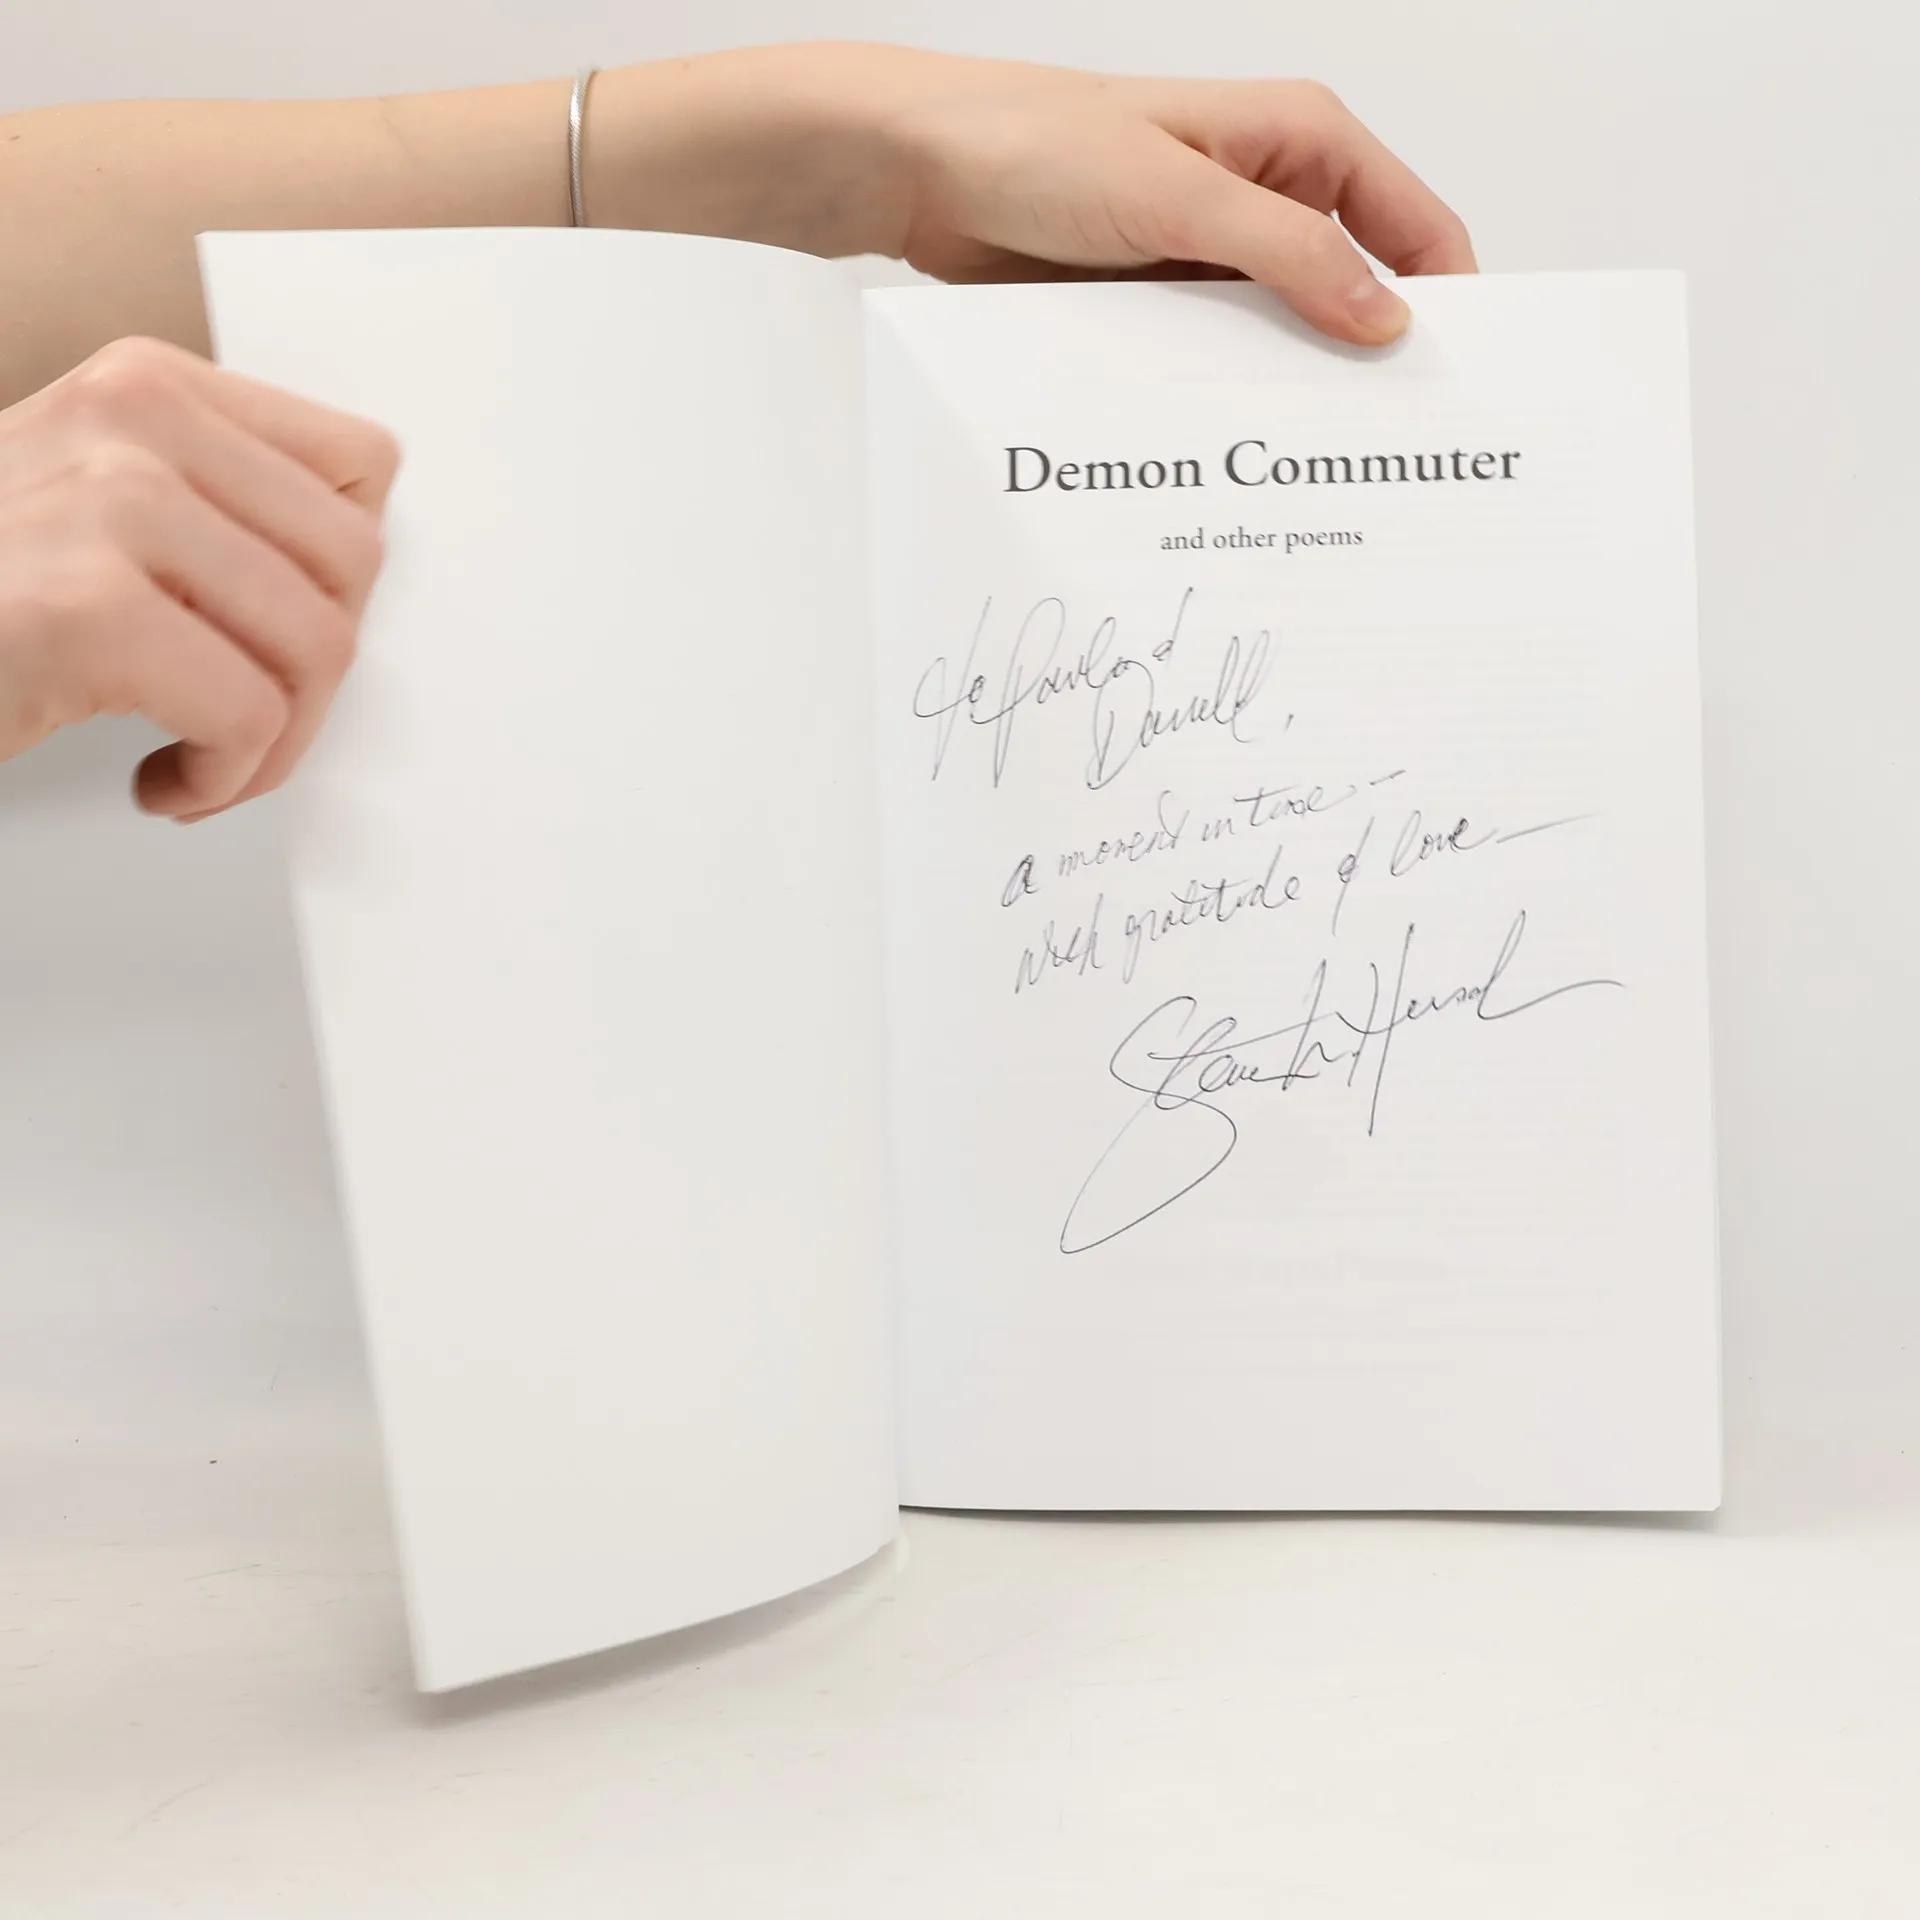 Demon Commuter
and other poems
To Paul and
Darrell,
a moment in time -
with gratitude & love -